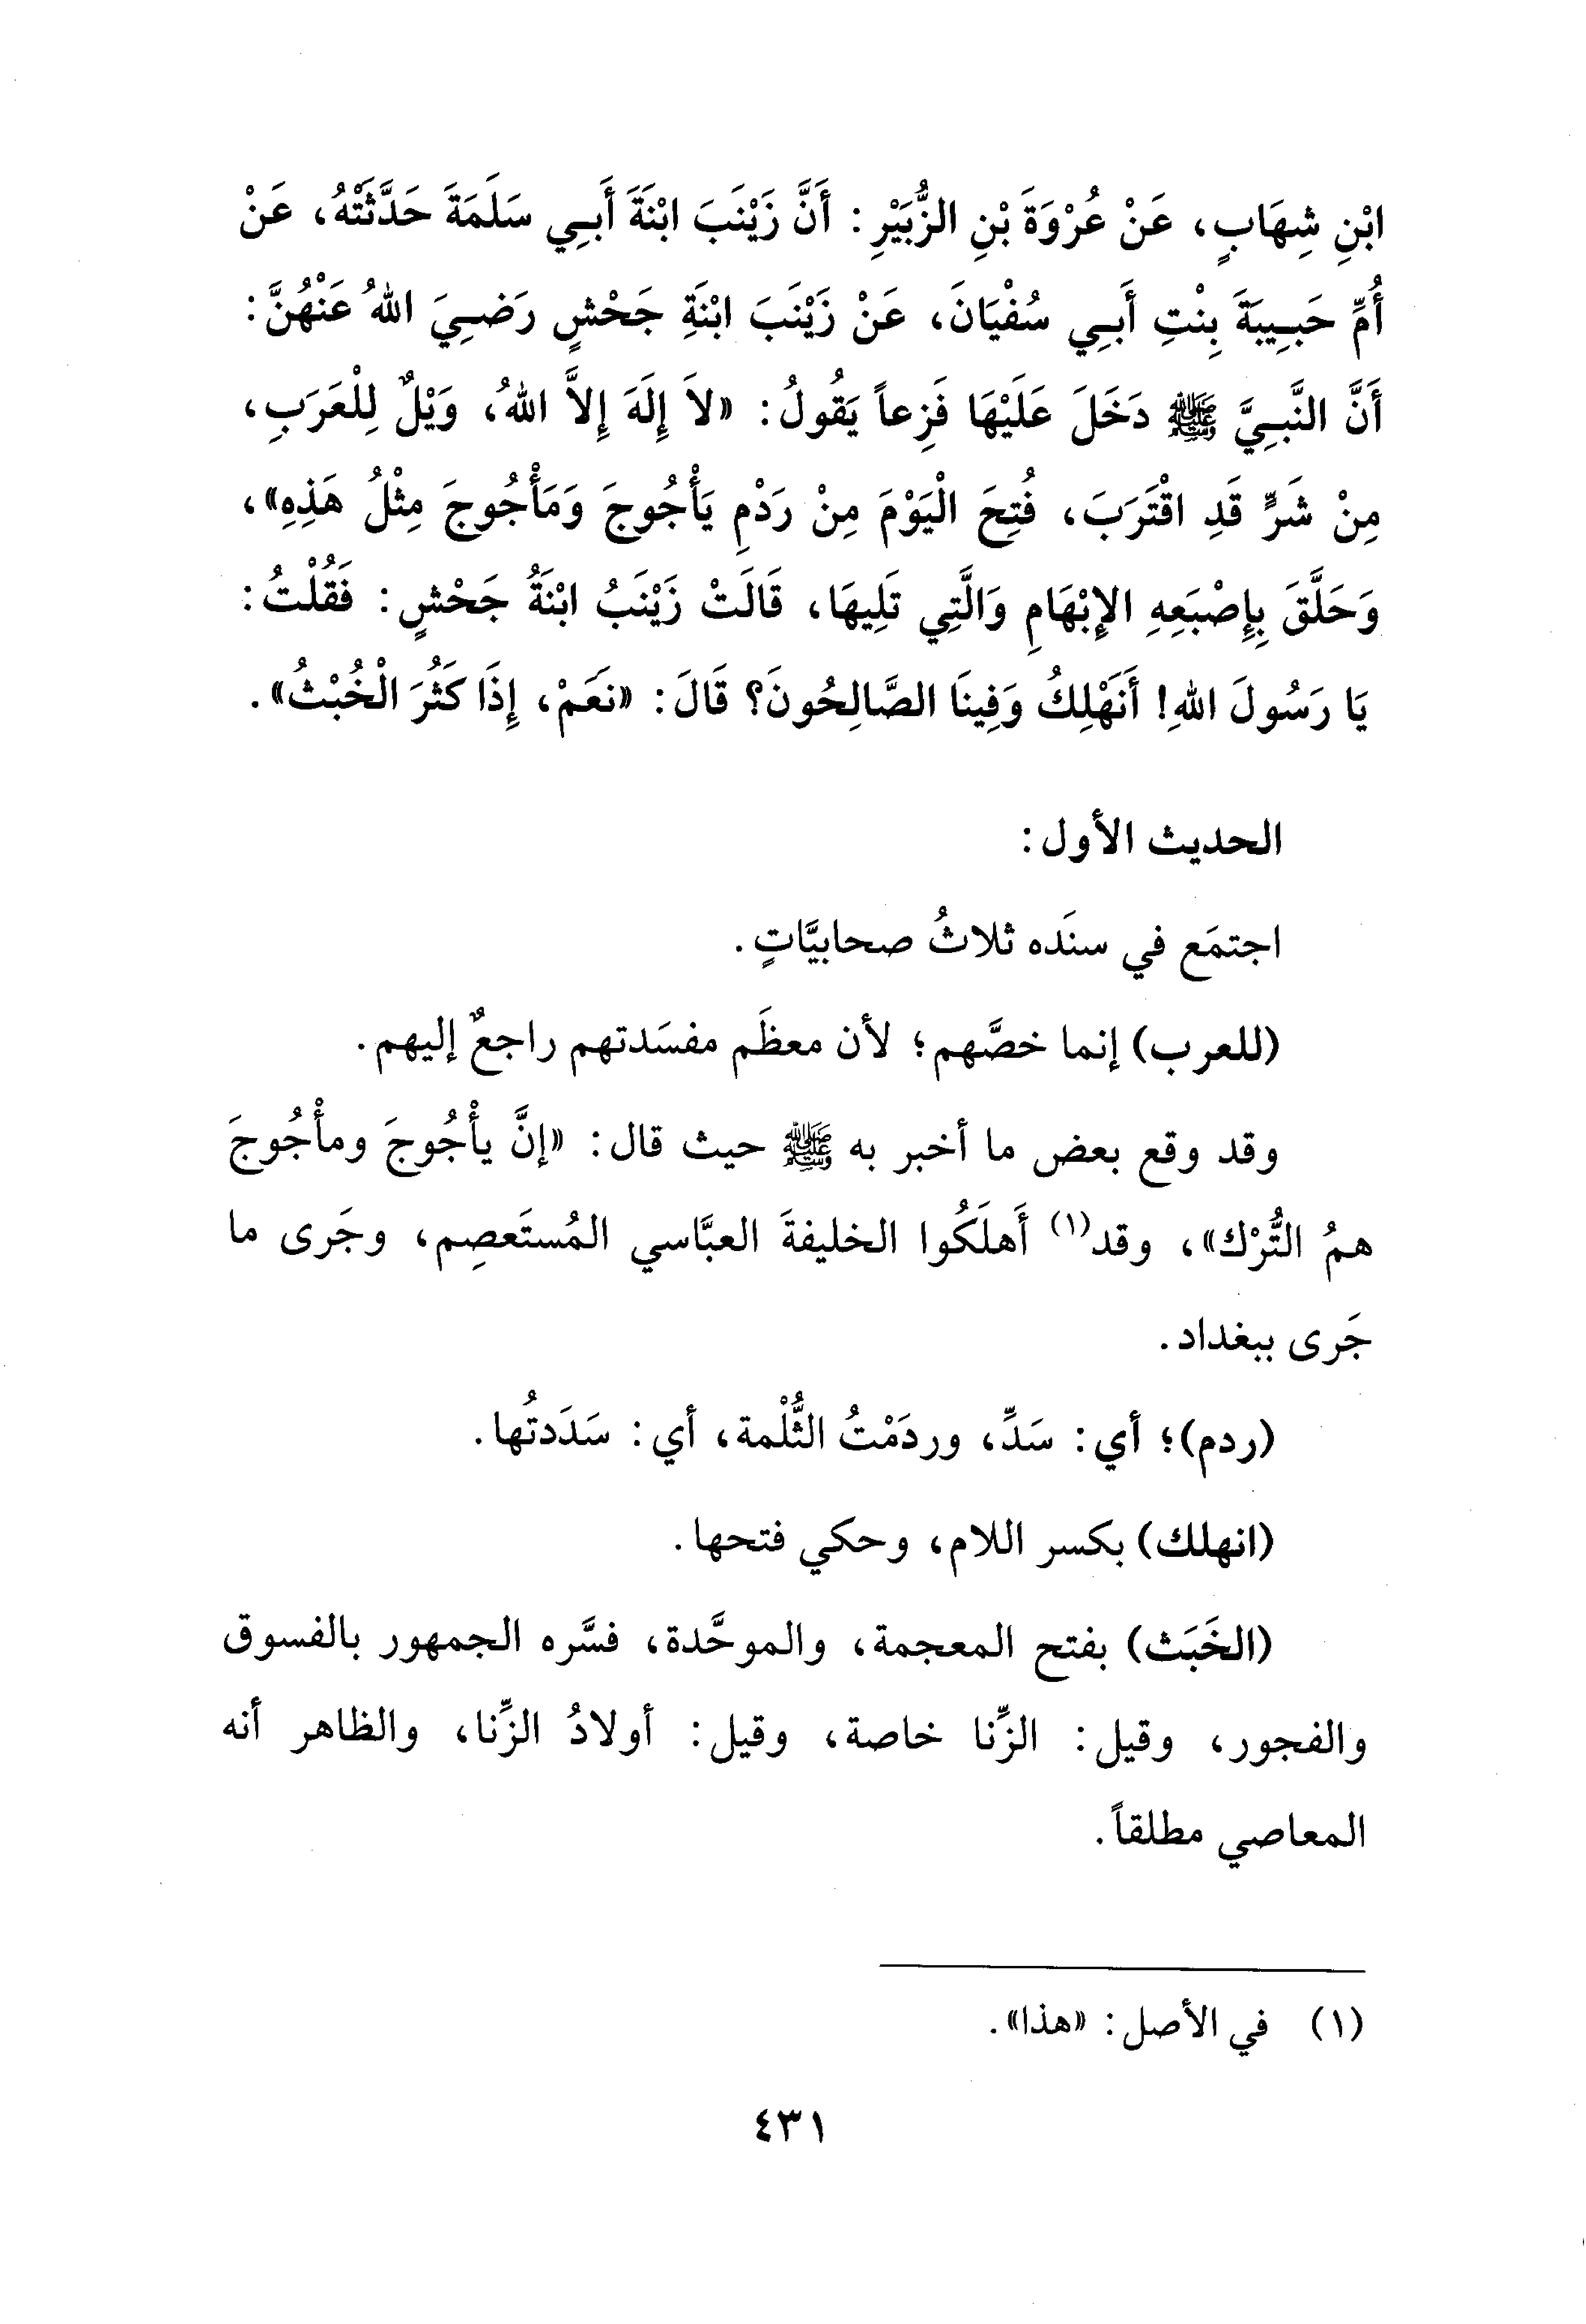 ابْنِ شِهَابٍ، عَنْ عُرْوَةَ بْنِ الزُّبَيْرِ: أَنَّ زَيْنَبَ ابْنَةَ أَبِي سَلَمَةَ حَدَّثَتْهُ، عَنْ
أُمِّ حَبِيبَةَ بِنْتِ أَبِي سُفْيَانَ، عَنْ زَيْنَبَ ابْنَةِ جَحْشٍ رَضِيَ اللهُ عَنْهُنَّ:
أَنَّ النَّبِيَّ ﷺ دَخَلَ عَلَيْهَا فَزِعاً يَقُولُ: «لاَ إِلَهَ إِلاَّ اللهُ، وَيْلٌ لِلْعَرَبِ،
مِنْ شَرٍّ قَدِ اقْتَرَبَ، فُتِحَ الْيَوْمَ مِنْ رَدْمِ يَأْجُوجَ وَمَأْجُوجَ مِثْلُ هَذِهِ»،
وَحَلَّقَ بِإِصْبَعِهِ الإِبْهَامِ وَالَّتِي تَلِيهَا، قَالَتْ زَيْنَبُ ابْنَةُ جَحْشٍ: فَقُلْتُ:
يَا رَسُولَ اللهِ! أَنَهْلِكُ وَفِينَا الصَّالِحُونَ؟ قَالَ: «نَعَمْ، إِذَا كَثُرَ الْخُبْثُ».
الحديث الأول:
اجتمَع في سنَده ثلاثُ صحابيَّاتٍ.
(للعرب) إنما خصَّهم؛ لأن معظَم مفسَدتهم راجعٌ إليهم.
وقد وقع بعض ما أخبر به ﷺ حيث قال: «إنَّ يأْجُوجَ ومأْجُوجَ
همُ التُّرْك»، وقد(١) أَهلَكُوا الخليفةَ العبَّاسي المُستَعصِم، وجَرى ما
جَرى ببغداد.
(ردم)؛ أي: سَدِّ، وردَمْتُ الثُّلْمة، أي: سَدَدتُها.
(انهلك) بكسر اللام، وحكي فتحها.
(الخَبَث) بفتح المعجمة، والموحَّدة، فسَّره الجمهور بالفسوق
والفجور، وقيل: الزِّنا خاصة، وقيل: أولادُ الزِّنا، والظاهر أنه
المعاصي مطلقاً.
(١) في الأصل: «هذا».
٤٣١